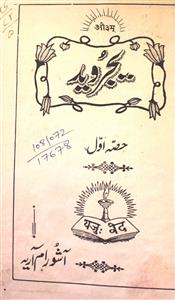 ओ३म्
یجروید
حصہ اوّل
108/072
17678
यजुः वेद
آشورام آریہ